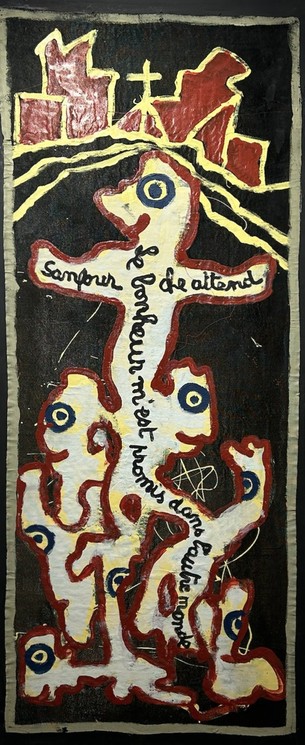 sanpeur Je attend
le bonheur m'est promis dans l'autre monde